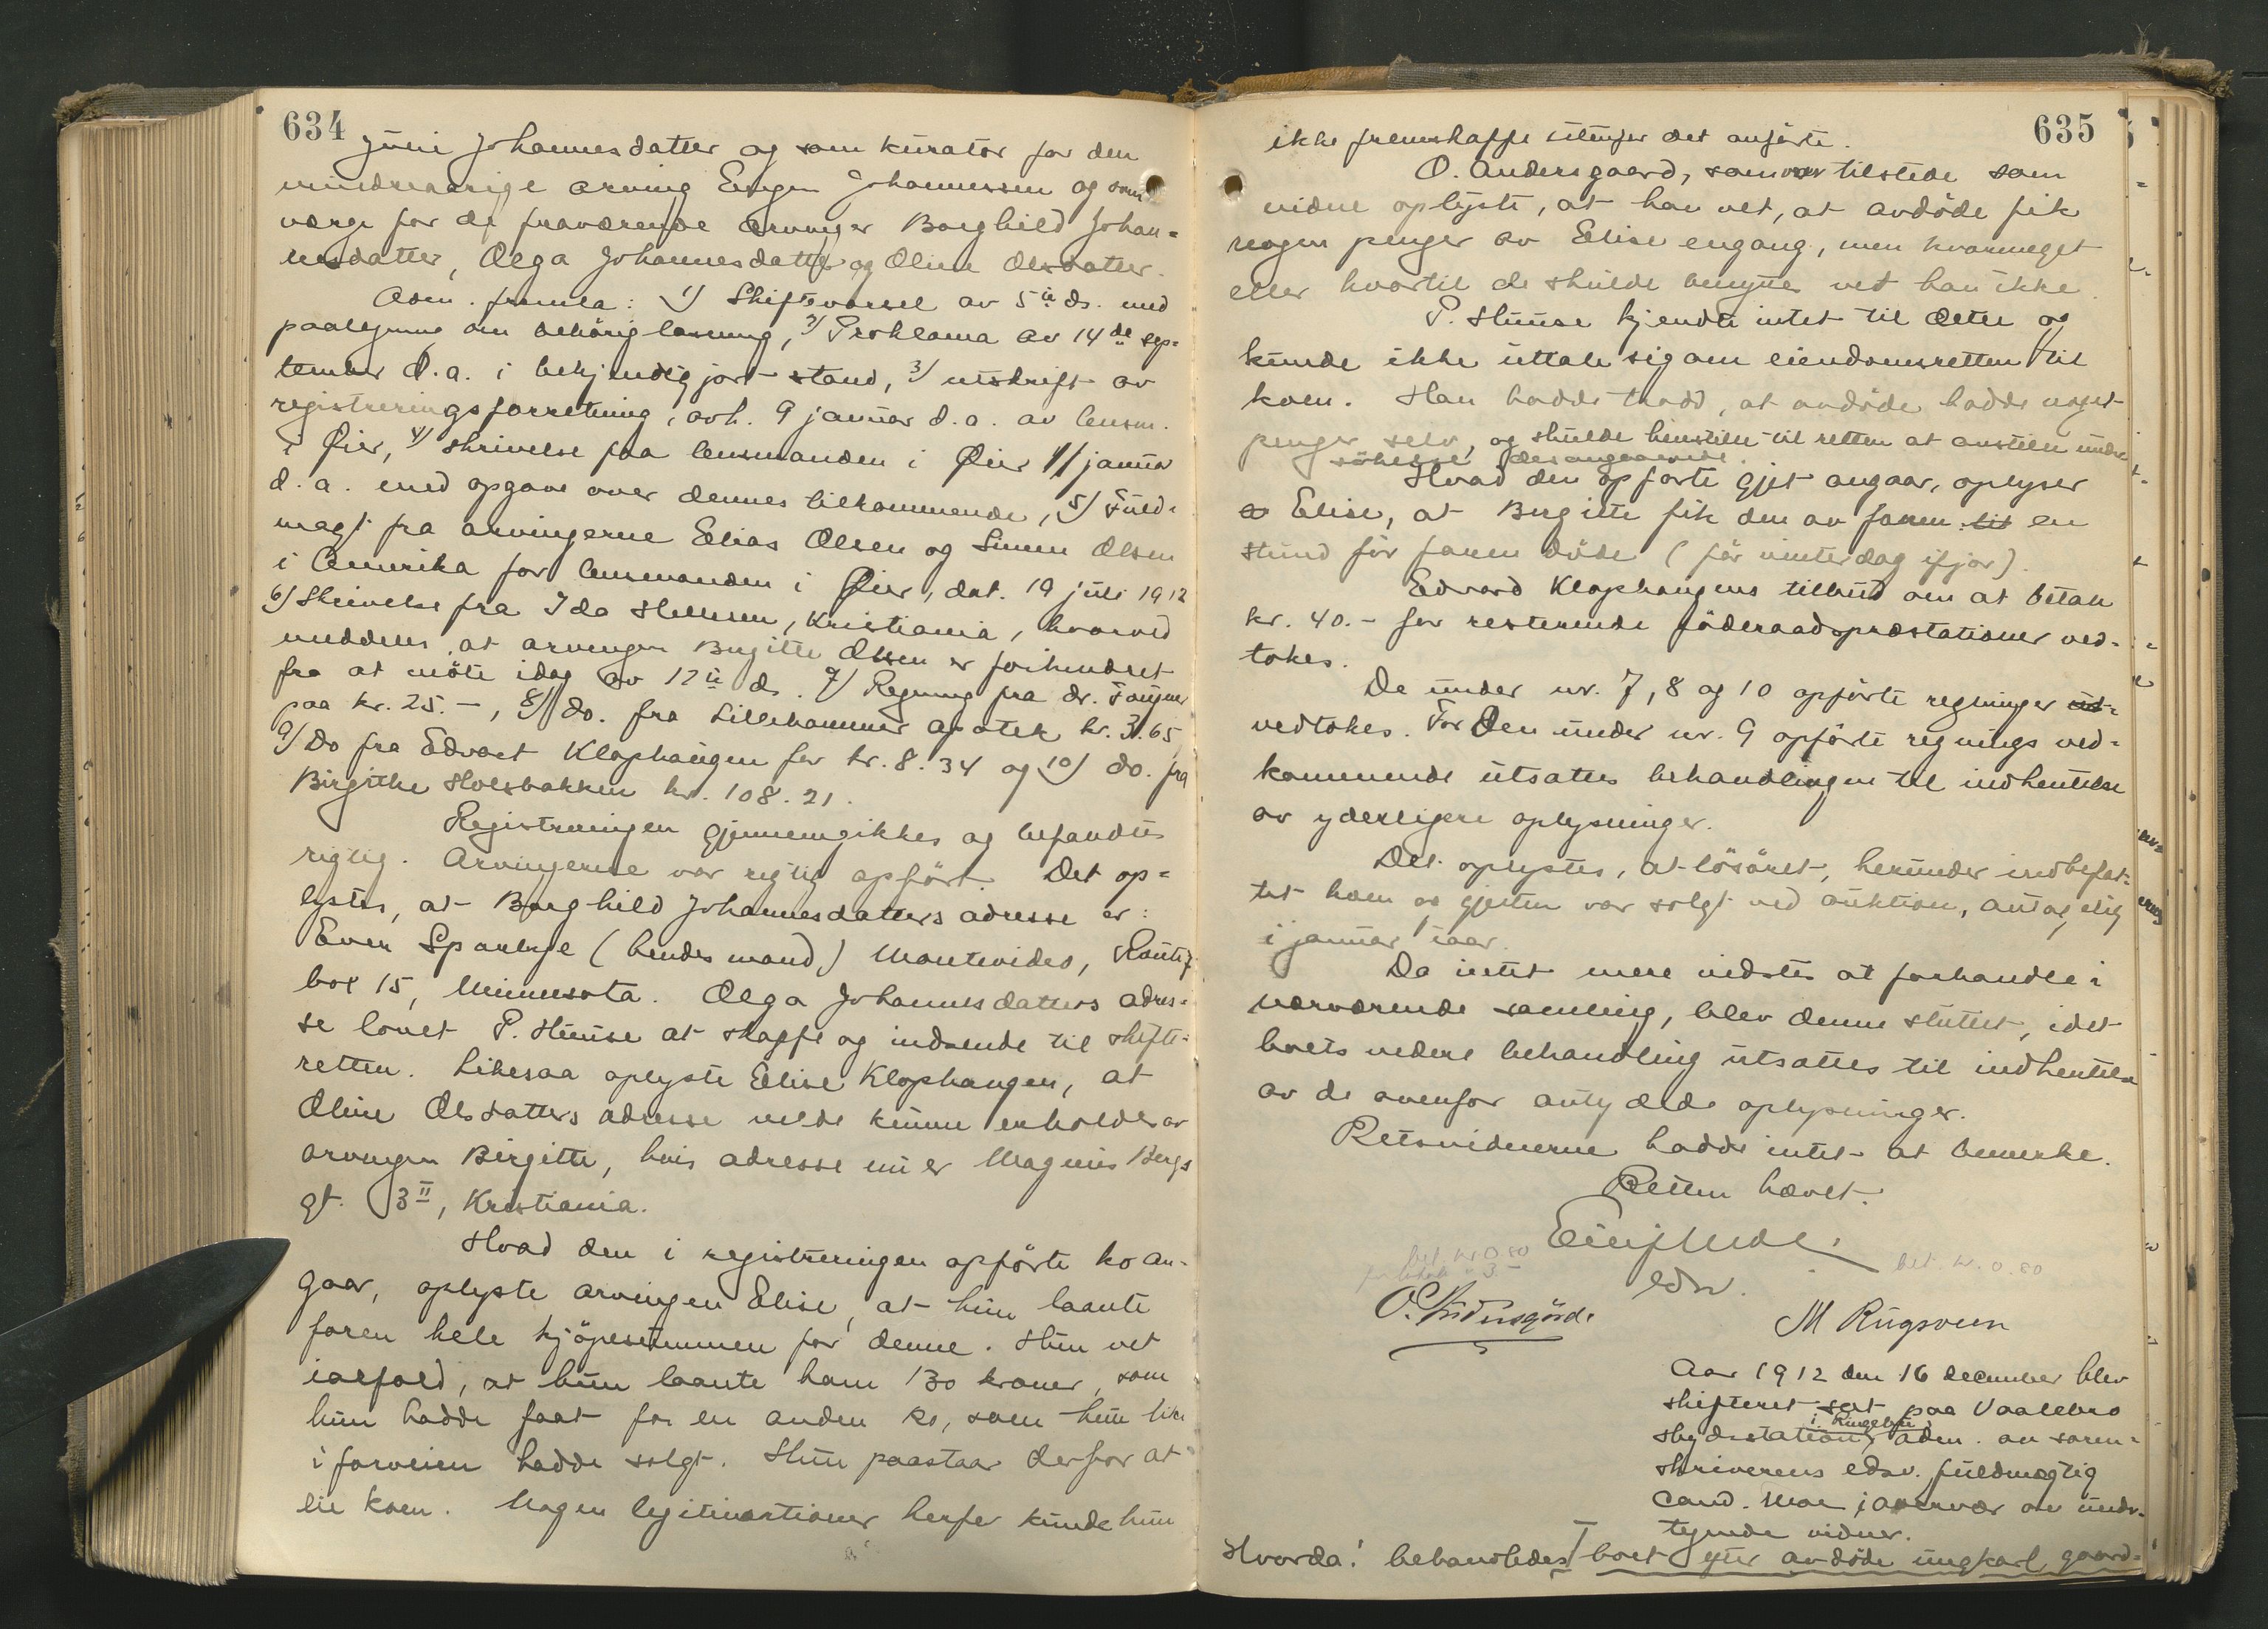 634
Juni Johannesdatter og som kurator for den
mindreaarige arving Eugen Johannessen og som
værge for de fraværende arvinger Borghild Johan=
nesdatter, Olga Johannesdatter og Oline Olsdatter.
Adm. fremla: 1) Skiftevarsel av 5te ds. med
paategning om behörig læsning, 2) Proklama av 14de sep=
tember d.a. i bekjendtgjort stand, 3) utskrift av
registreringsforretning, avh. 9 januar d.a. av lensm.
i Öier, 4) skrivelse fra lensmanden i Öier 11/ januar
d.a. med opgave over dennes tilkommende, 5) Fuld=
magt fra arvingerne Elias Olsen og Simen Olsen
i Amerika for lensmanden i Öier, dat. 19 juli 1912
6) Skrivelse fra Ida Hellesen, Kristiania, hvorved
meddeles, at arvingen Birgitte Olsen er forhindret
fra at möte idag av 12te ds. 7) Regning fra dr. Fougner
paa kr. 25.-, 8) do. fra Lillehammer apotek kr. 3.65
9) Do fra Edvart Klophaugen for kr. 8.34 og 10) do. fra
Birgithe Holsbakken kr. 108.21.
Registreringen gjennemgikkes og befandtes
rigtig. Arvingerne var rigtig opfört. Det op=
lystes, at Borghild Johannesdatters adresse er:
Even (hendes mand) Montevideo, Route 7
box 15, Minnesota. Olga Johannesdatters adres=
se lovet P. Huuse at skaffe og indsende til skifte=
retten. Likesaa oplyste Elise Klophaugen, at
Oline Olsdatters adresse vilde kunne erholdes av
arvingen Birgitte, hvis adresse nu er Magnus Bergs
gt. 3 II, Kristiania.
Hvad den i registreringen opförte ko an-
gaar, oplyste arvingen Elise, at hun laante
faren hele kjöpesummen for denne. Hun vet
ialfald, at hun laante ham 130 kroner, som
hun hadde faat for en anden ko, som hun like
i forveien hadde solgt. Hun paastaar derfor at
eie koen. Nogen legitimationer herfor kunde hun
635
ikke fremskaffe utenfor det anförte.
O. Andersgaard, som var tilstede som
vidne oplyste, at han vet, at avdöde fik
nogen penger av Elise engang, men hvormeget
eller hvortil de skulde benyttes vet han ikke.
P. Huuse kjendte intet til dette og
kunde ikke uttale sig om eiendomsretten til
koen. Han hadde trodd, at avdöde hadde noget
penger selv, og skulde henstille til retten at anstille under
sökelse desangaaende.
Hvad den opförte gjet angaar, oplyser
Elise, at Birgitte fik den av faren til en
stund för faren döde (för vinterdag ifjor).
Edvard Klophaugens tilbud om at betale
kr. 40.- for resterende föderaadspræstationer ved-
tokes.
De under nr. 7, 8 og 10 opförte regninger ut=
vedtokes. For den under nr. 9 opförte regnings ved=
kommende utsattes behandlingen til indhentelse
av yderligere oplysninger.
Det oplystes, at lösöret, herunder indbefat=
tet koen og gjeten var solgt ved auktion, antagelig
i januar iaar.
Da intet mere vidstes at forhandle i
nærværende samling, blev denne sluttet, idet
boets videre behandling utsattes til indhentelse
av de ovenfor antydede oplysninger.
Retsvidnerne hadde intet at bemerke.
Retten hævet.
edsv.
bet. kr. 0.80
bet. kr. 0.80
M Rugsveen
Aar 1912 den 16 december blev
skifteret sat paa Vaalebro
i Ringebu
skydsstation, adm. av soren=
skriverens edsv. fuldmægtig
cand. Moe i overvær av under-
tegnede vidner.
Hvorda: behandledes boet efter avdöde ungkarl, gaard=